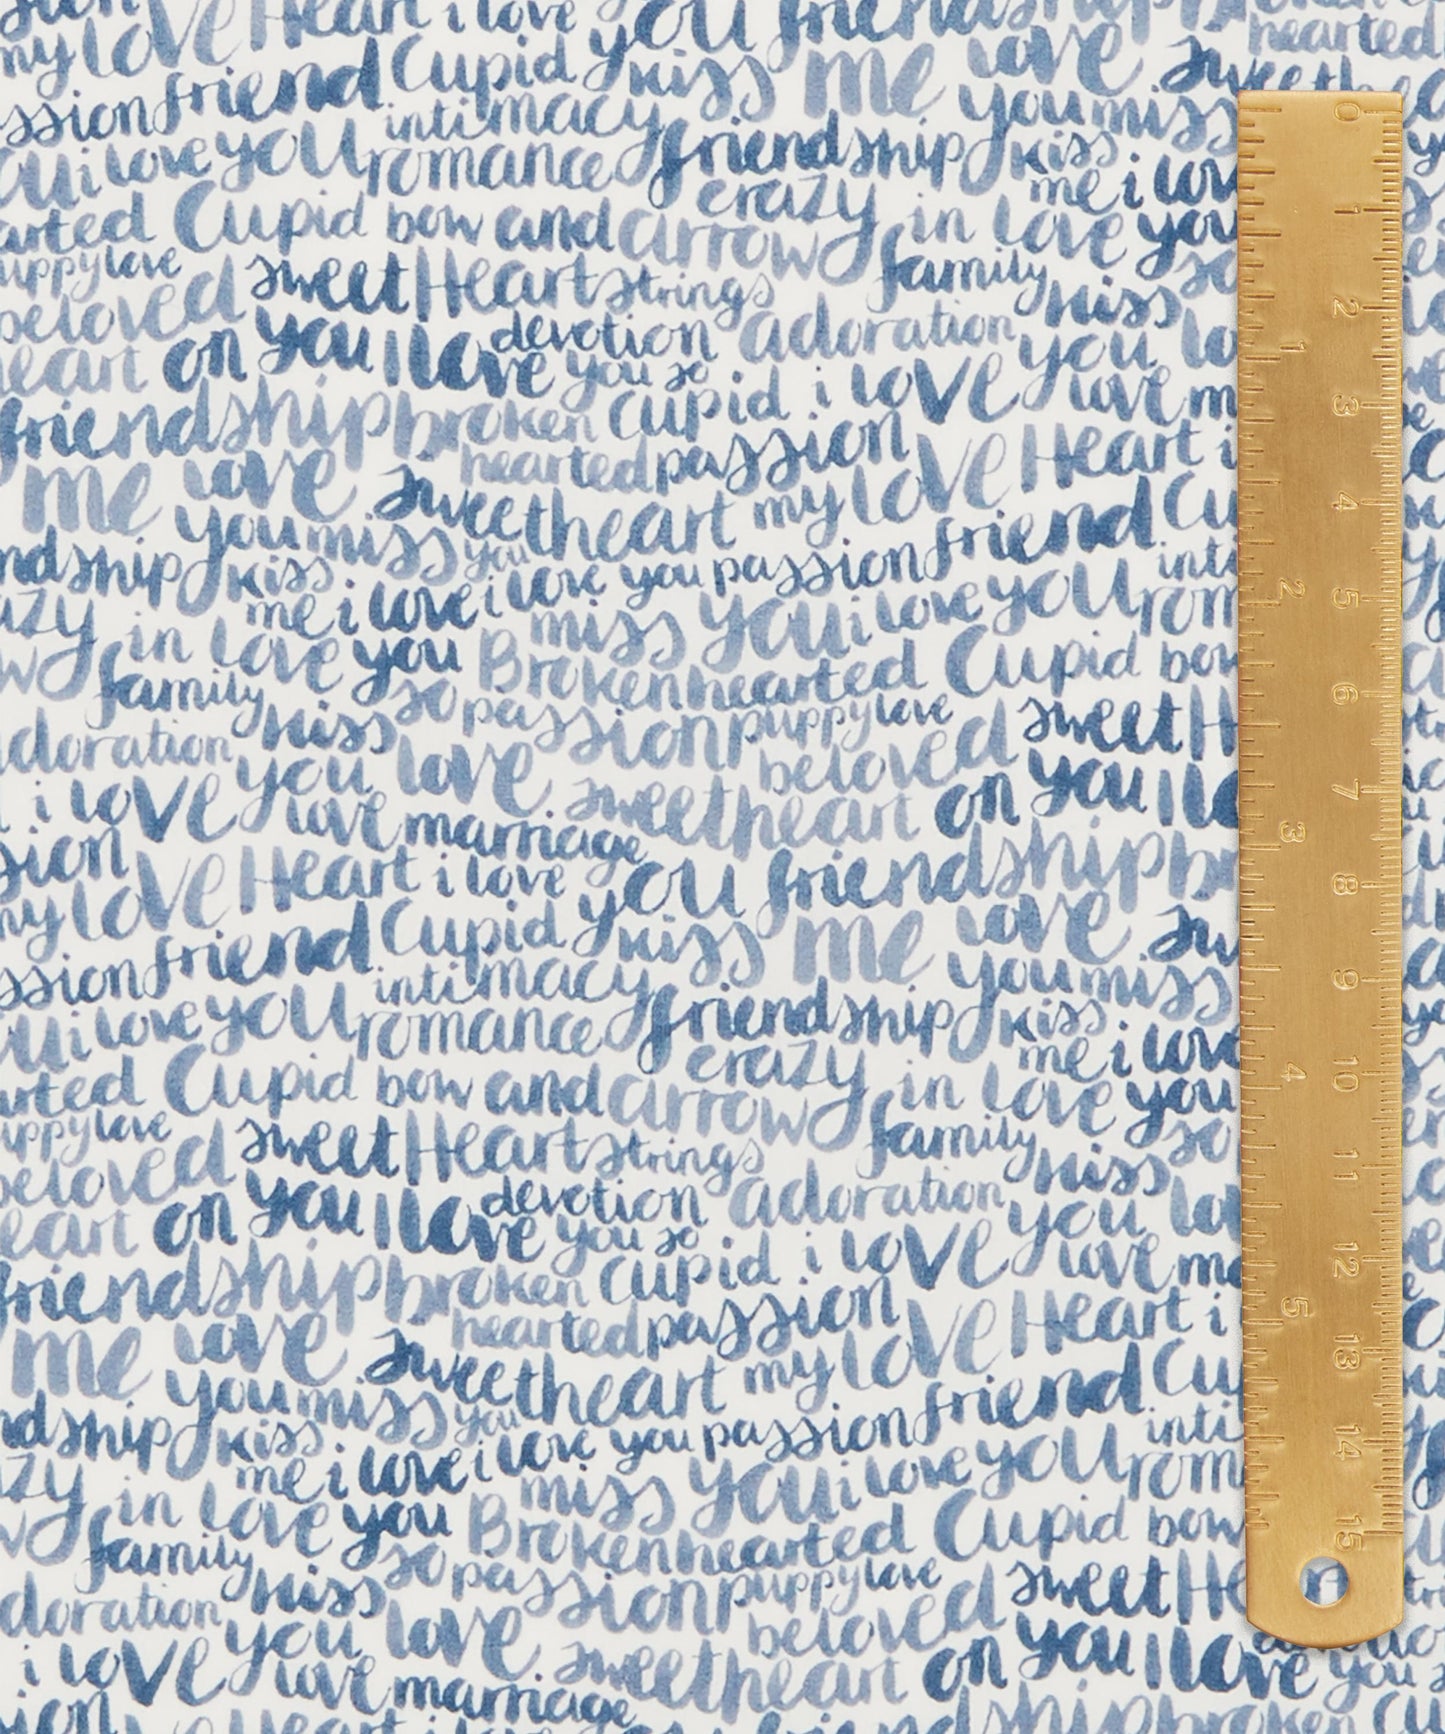 my love Heart i love you friendship
hearted
friend Cupid kiss me love
ssion intimacy you miss
i love you romance friendship kiss
me i love
arted Cupid bow and arrow crazy in love you
puppy love sweet Heart strings family so
beloved devotion adoration kiss
heart on you I love you so you lo
friendship broken Cupid i love love m
hearted passion Heart i
me love sweetheart my love Cu
you miss you passion friend
ndship kiss i love you inti
me i love miss you i love you rom
azy in love you Broken hearted Cupid bow
family so passion puppy love sweet H
adoration kiss love beloved
you sweetheart on you I lo
i love love marriage
ssion Heart i love you friendship br
my love
friend Cupid kiss me love sw
ssion intimacy you miss
i love you romance friendship kiss
me i love
arted Cupid bow and arrow crazy in love you
puppy love sweet Heart strings family so
beloved devotion adoration kiss
heart on you I love you so you lo
friendship broken Cupid i love love ma
hearted passion Heart i
me love sweetheart my love Cu
you miss you passion friend
ndship kiss i love you inti
me i love miss you i love you rom
azy in love you Broken hearted Cupid bow
family so passion puppy love sweet He
adoration kiss love beloved
you sweetheart on you I love you
i love love marriage
Heart i love you friendship broken Cu
0
1
2
3
4
5
6
7
8
9
10
11
12
13
14
15
1
2
3
4
5